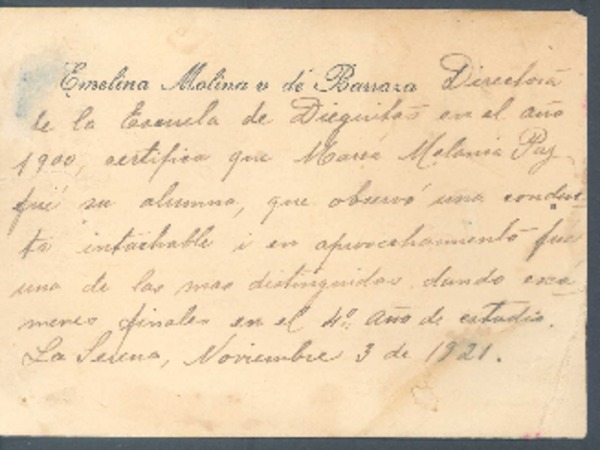 Emelina Molina v. de Barraza Directora
de la Escuela de Dieguitos en el año
1900, certifica que María Melania Paz
fué su alumna, que observó una conduc-
ta intachable i en aprovechamiento fué
una de las mas distinguidas, dando exá-
menes finales en el 4º año de estudio.
La Serena, Noviembre 3 de 1921.